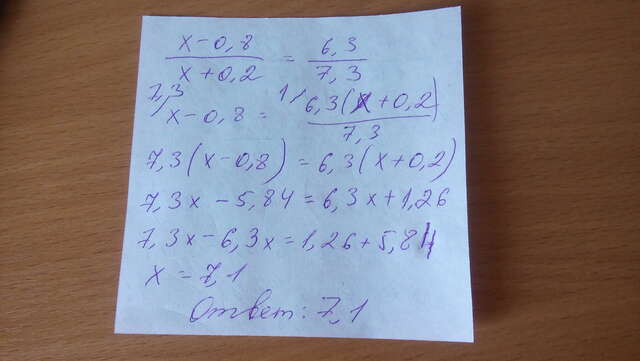 x-0,8 / x+0,2 = 6,3 / 7,3
7,3) x-0,8 = 1) 6,3(x+0,2) / 7,3
7,3(x-0,8) = 6,3(x+0,2)
7,3x - 5,84 = 6,3x + 1,26
7,3x - 6,3x = 1,26 + 5,84
x = 7,1
Ответ: 7,1